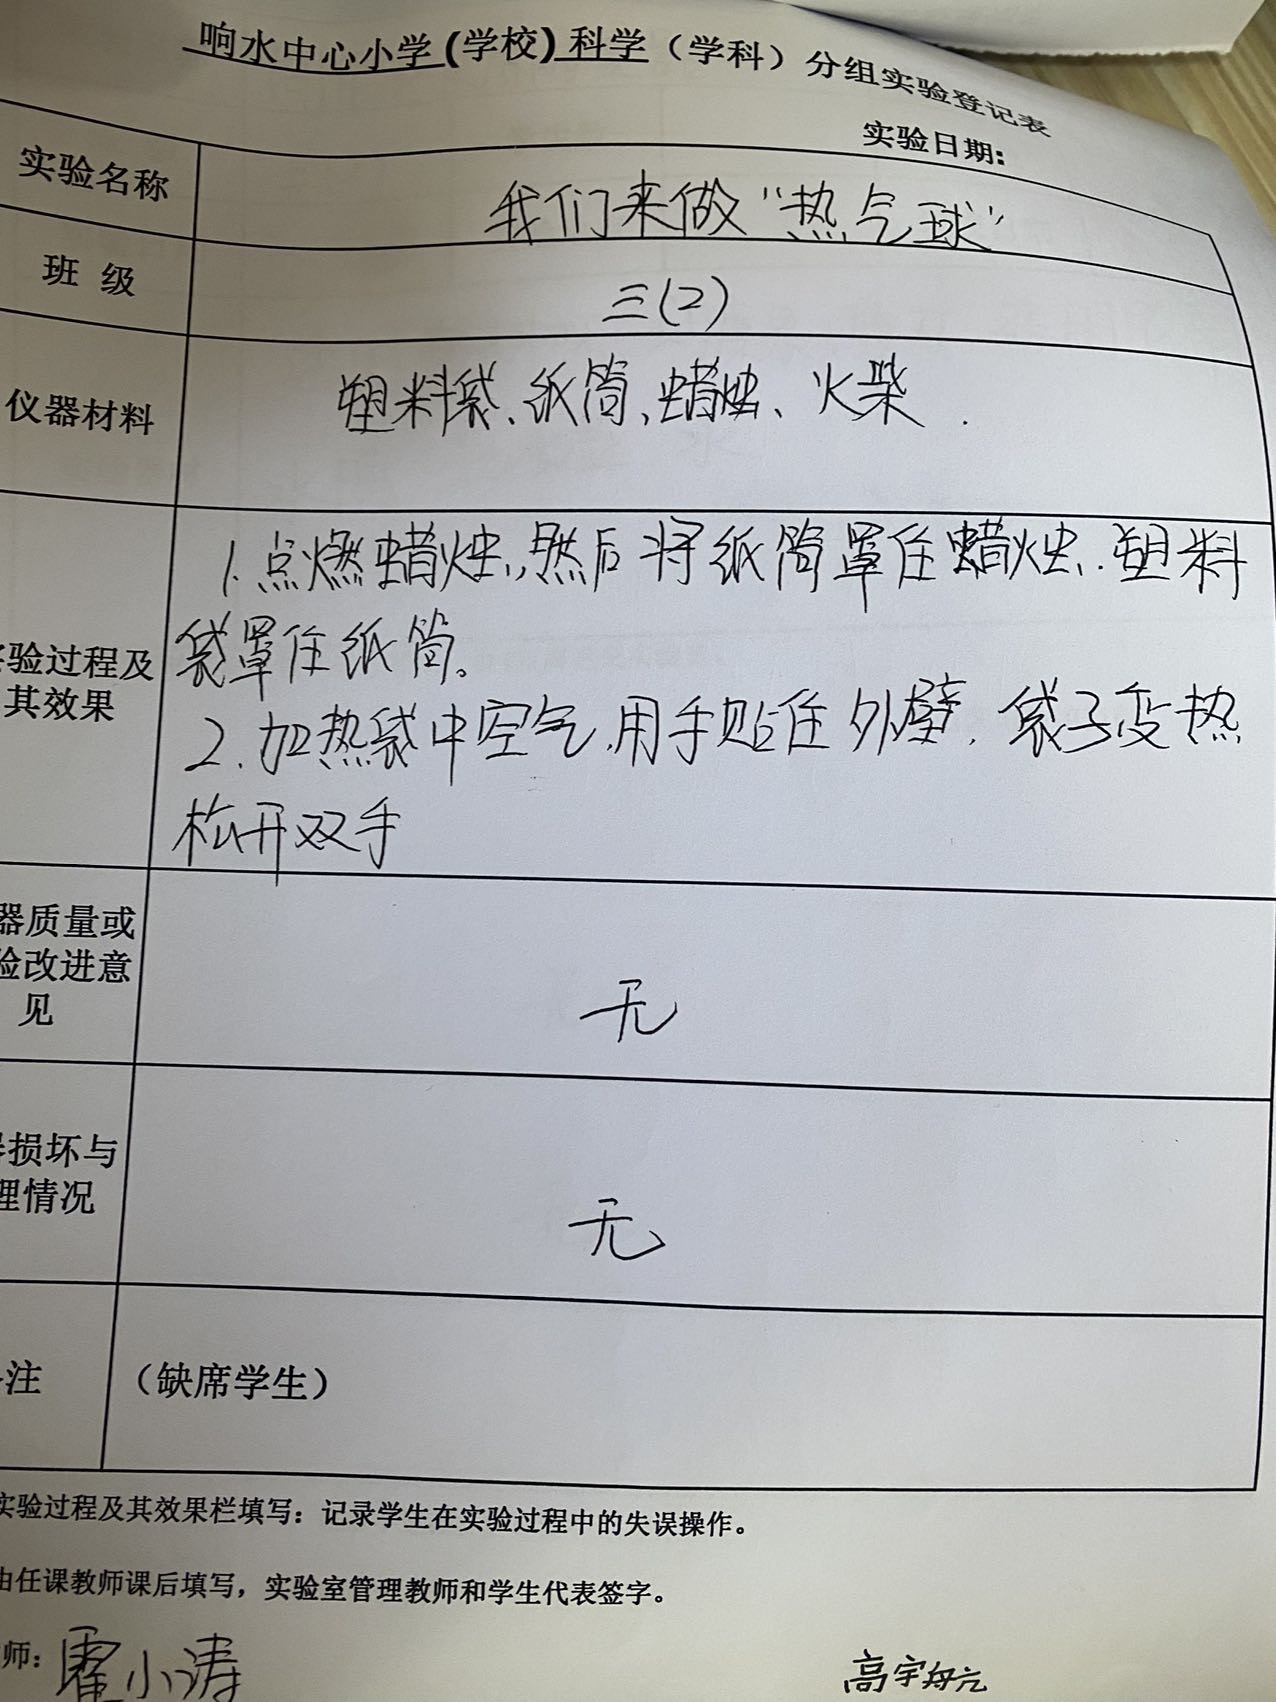 响水中心小学(学校)科学（学科）分组实验登记表
实验日期:
实验名称 我们来做“热气球”
班 级 三(2)
仪器材料 塑料袋、纸筒、蜡烛、火柴.
1.点燃蜡烛,然后将纸筒罩住蜡烛.塑料
袋罩住纸筒。
验过程及
其效果
2.加热袋中空气,用手贴住外壁,袋子变热
松开双手
器质量或
验改进意
见
无
损坏与
理情况
无
注 （缺席学生）
实验过程及其效果栏填写：记录学生在实验过程中的失误操作。
由任课教师课后填写，实验室管理教师和学生代表签字。
师: 小涛 高宇